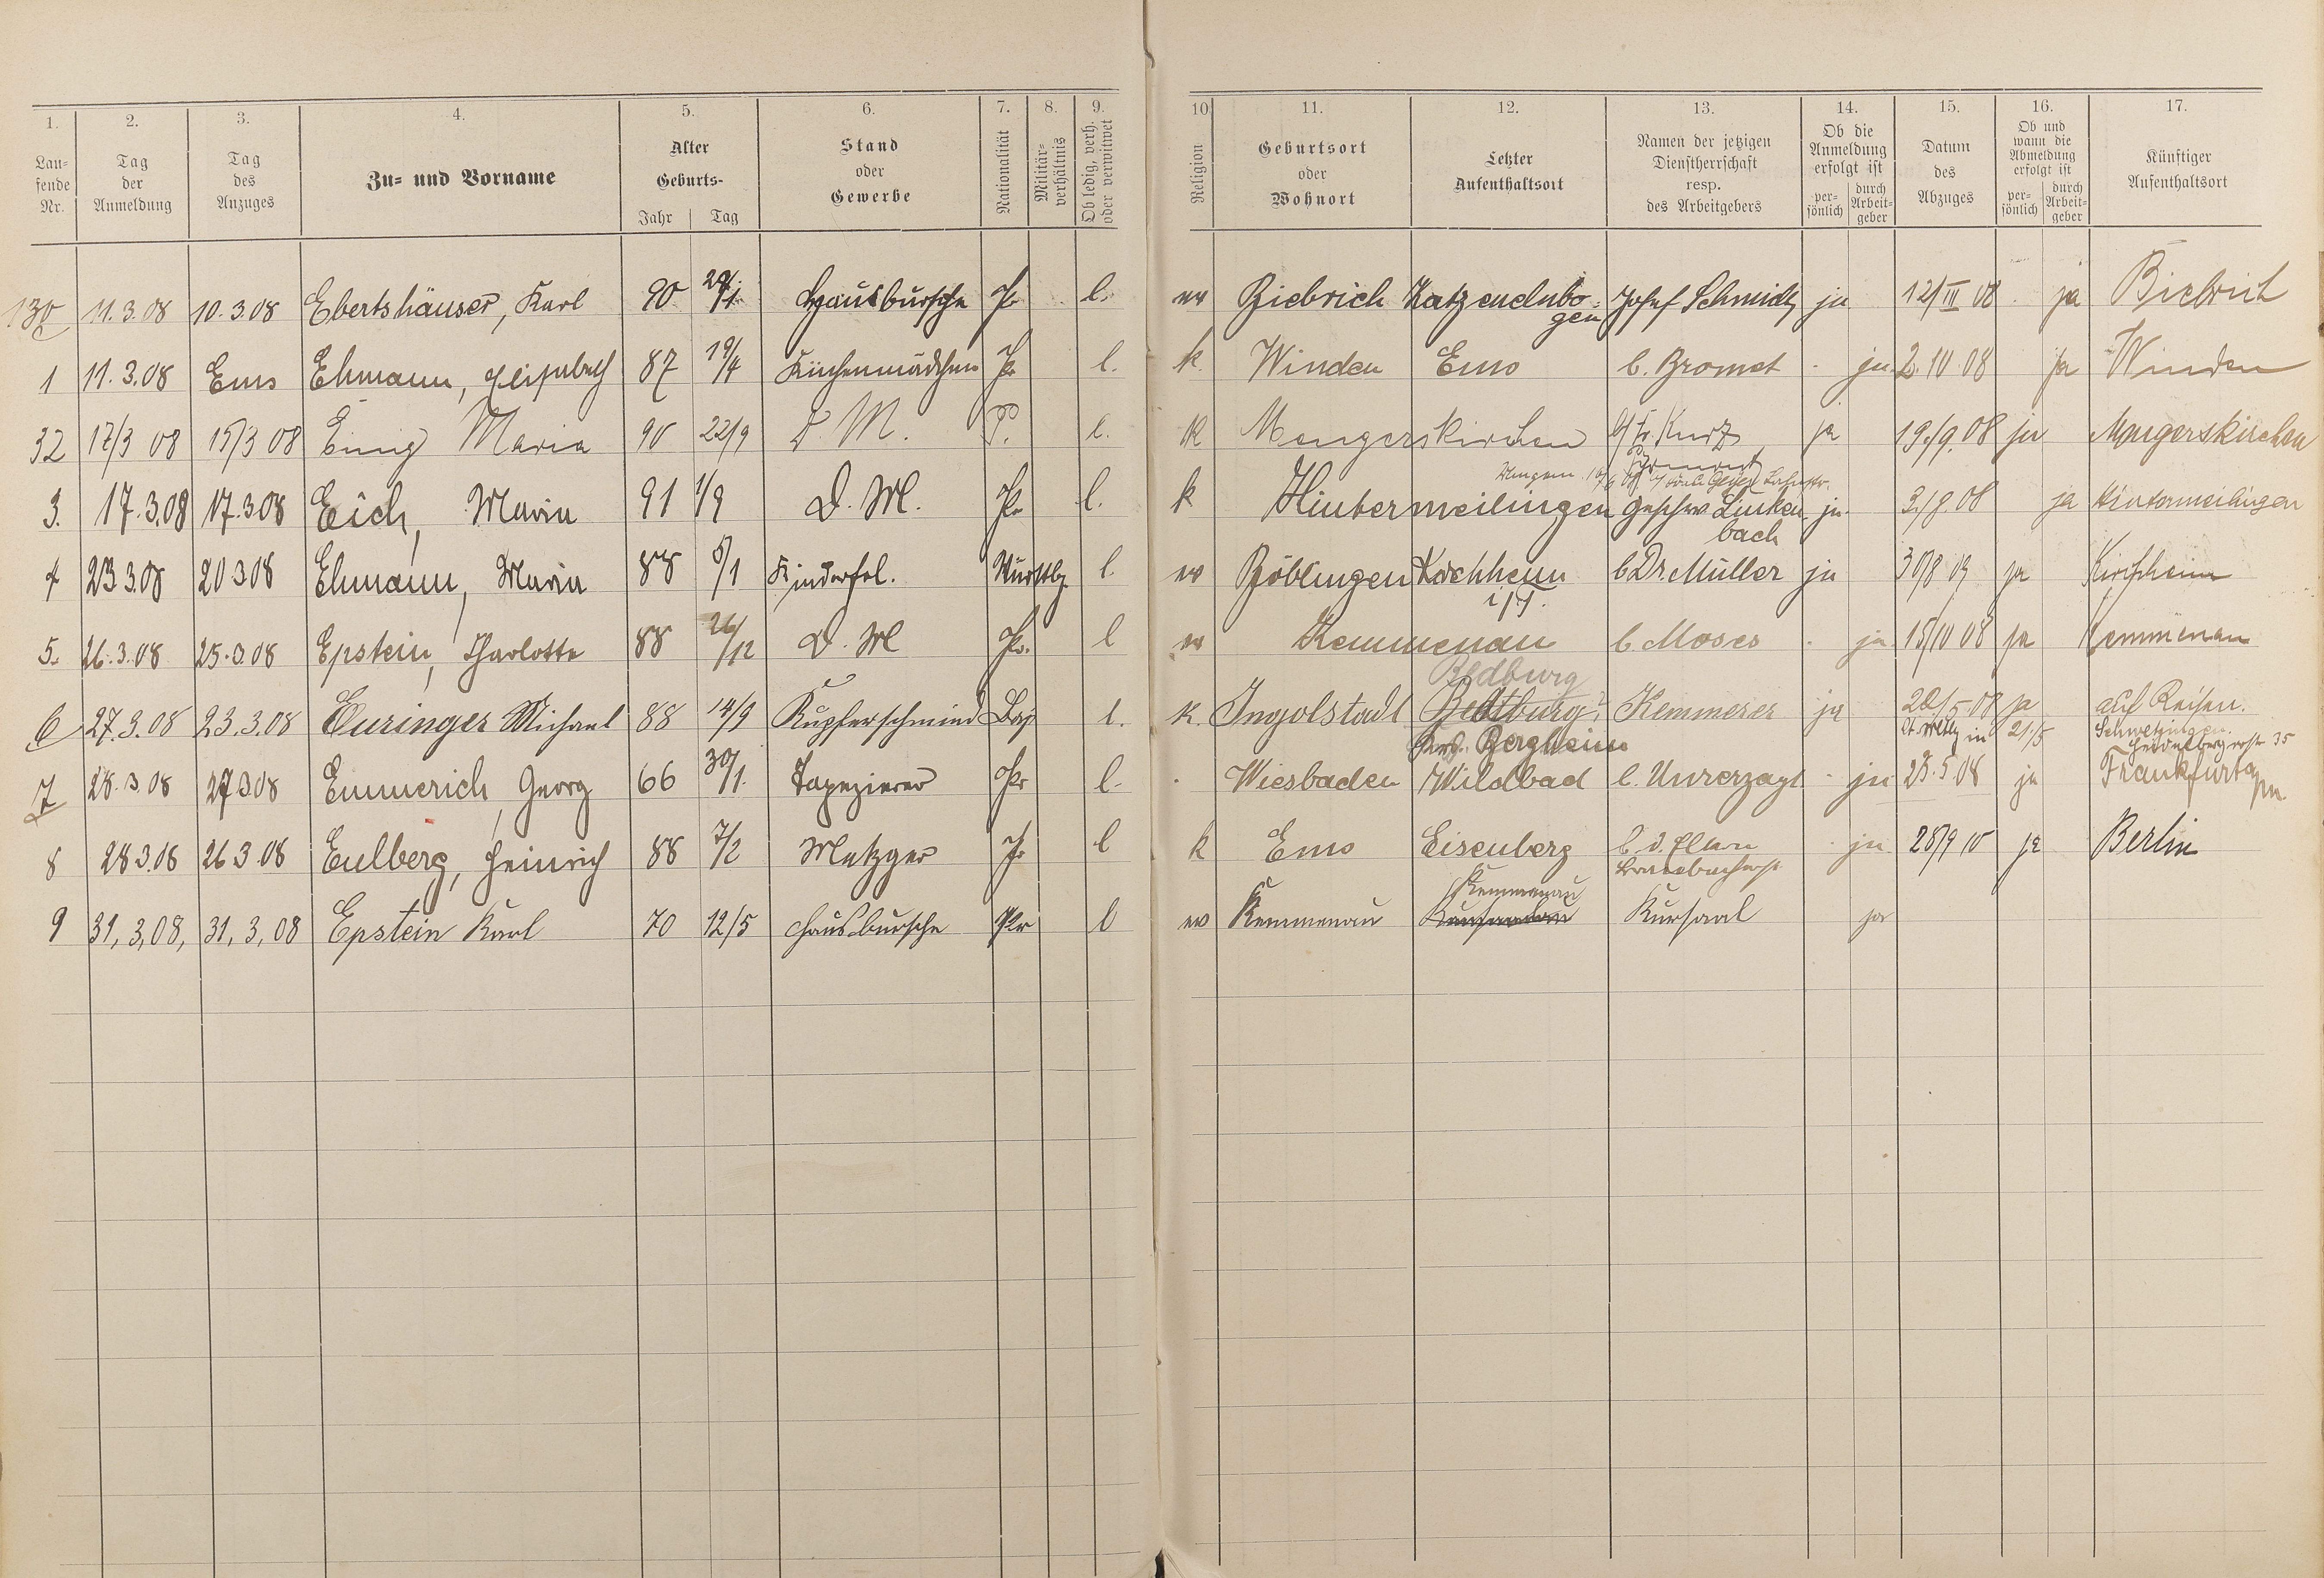 1. 2. 3. 4. 5. 6. 7. 8. 9. 10 11. 12. 13. 14. 15. 16. 17.
Lau-
fende
Nr.
Tag
der
Anmeldung
Tag
des
Anzuges
Zu- und Vorname
Alter
Geburts-
Jahr Tag
Stand
oder
Gewerbe
Nationalität
Militär-
verhältnis
Ob ledig, verh.
oder verwitwet
Religion
Geburtsort
oder
Wohnort
Letzter
Aufenthaltsort
Namen der jetzigen
Dienstherrschaft
resp.
des Arbeitgebers
Ob die
Anmeldung
erfolgt ist
per-
sönlich
durch
Arbeit-
geber
Datum
des
Abzuges
Ob und
wann die
Abmeldung
erfolgt ist
per-
sönlich
durch
Arbeit-
geber
Künftiger
Aufenthaltsort
130 11.3.08 10.3.08 Ebertshäuser, Karl 90 Hausbursche Pr l. ev Biebrich Katzenelnbo- Josef Schmidt ja 12/III 08 ja Biebrich
gen
1 11.3.08 Ems Ehmann, Elisabeth 87 19/4 Küchenmädchen Pr l. k. Winden Ems b. Bromet ja 2.10.08 ja Winden
32 17/3 08 15/3 08 Einig Maria 90 22/9 D. M. P. l. k Mengerskirchen b/ Fr. Kurz ja 19./9.08 ja Mengerskirchen
3. 17.3.08 17.3.08 Eich, Maria 91 1/9 D. M. Pr l. k Hintermeilingen Geschw Linken- ja 3/9.08 ja Hintermeilingen
bach
4 23 3.08 20 3 08 Ehmann, Maria 88 5/1 Kinderfrl. Württbg l. ev Böblingen Kirchheim b Dr. Müller ja 30/8 09 ja Kirchheim
i/T.
5. 26.3.08 25.3.08 Epstein, Charlotte 88 26/12 D. M Pr. l ev Kemmenau b Moses ja 15/10 08 ja Kemmenau
Bedburg
6 27.3.08 23.3.08 Euringer Michael 88 14/9 Kupferschmied Bay l. k. Ingolstadt Bedtburg Kemmerer ja 20/5.08 ja auf Reisen.
Bergheim 21/5 Schwetzingen.
Heidelbergerstr 35
7 28.3.08 27 3 08 Emmerich, Georg 66 30/1. Tapezierer Pr l. Wiesbaden Wildbad b. Unverzagt ja 23.5.08 ja Frankfurt a/m
8 28 3.08 26 3 08 Eulberg, Heinrich 88 7/2 Metzger Pr l k Ems Eisenberg ja 28/9 10 ja Berlin
Kemmenau
9 31,3,08, 31,3,08 Epstein Karl 70 12/5 Hausbursche Pr l ev Kemmenau Kursaal ja